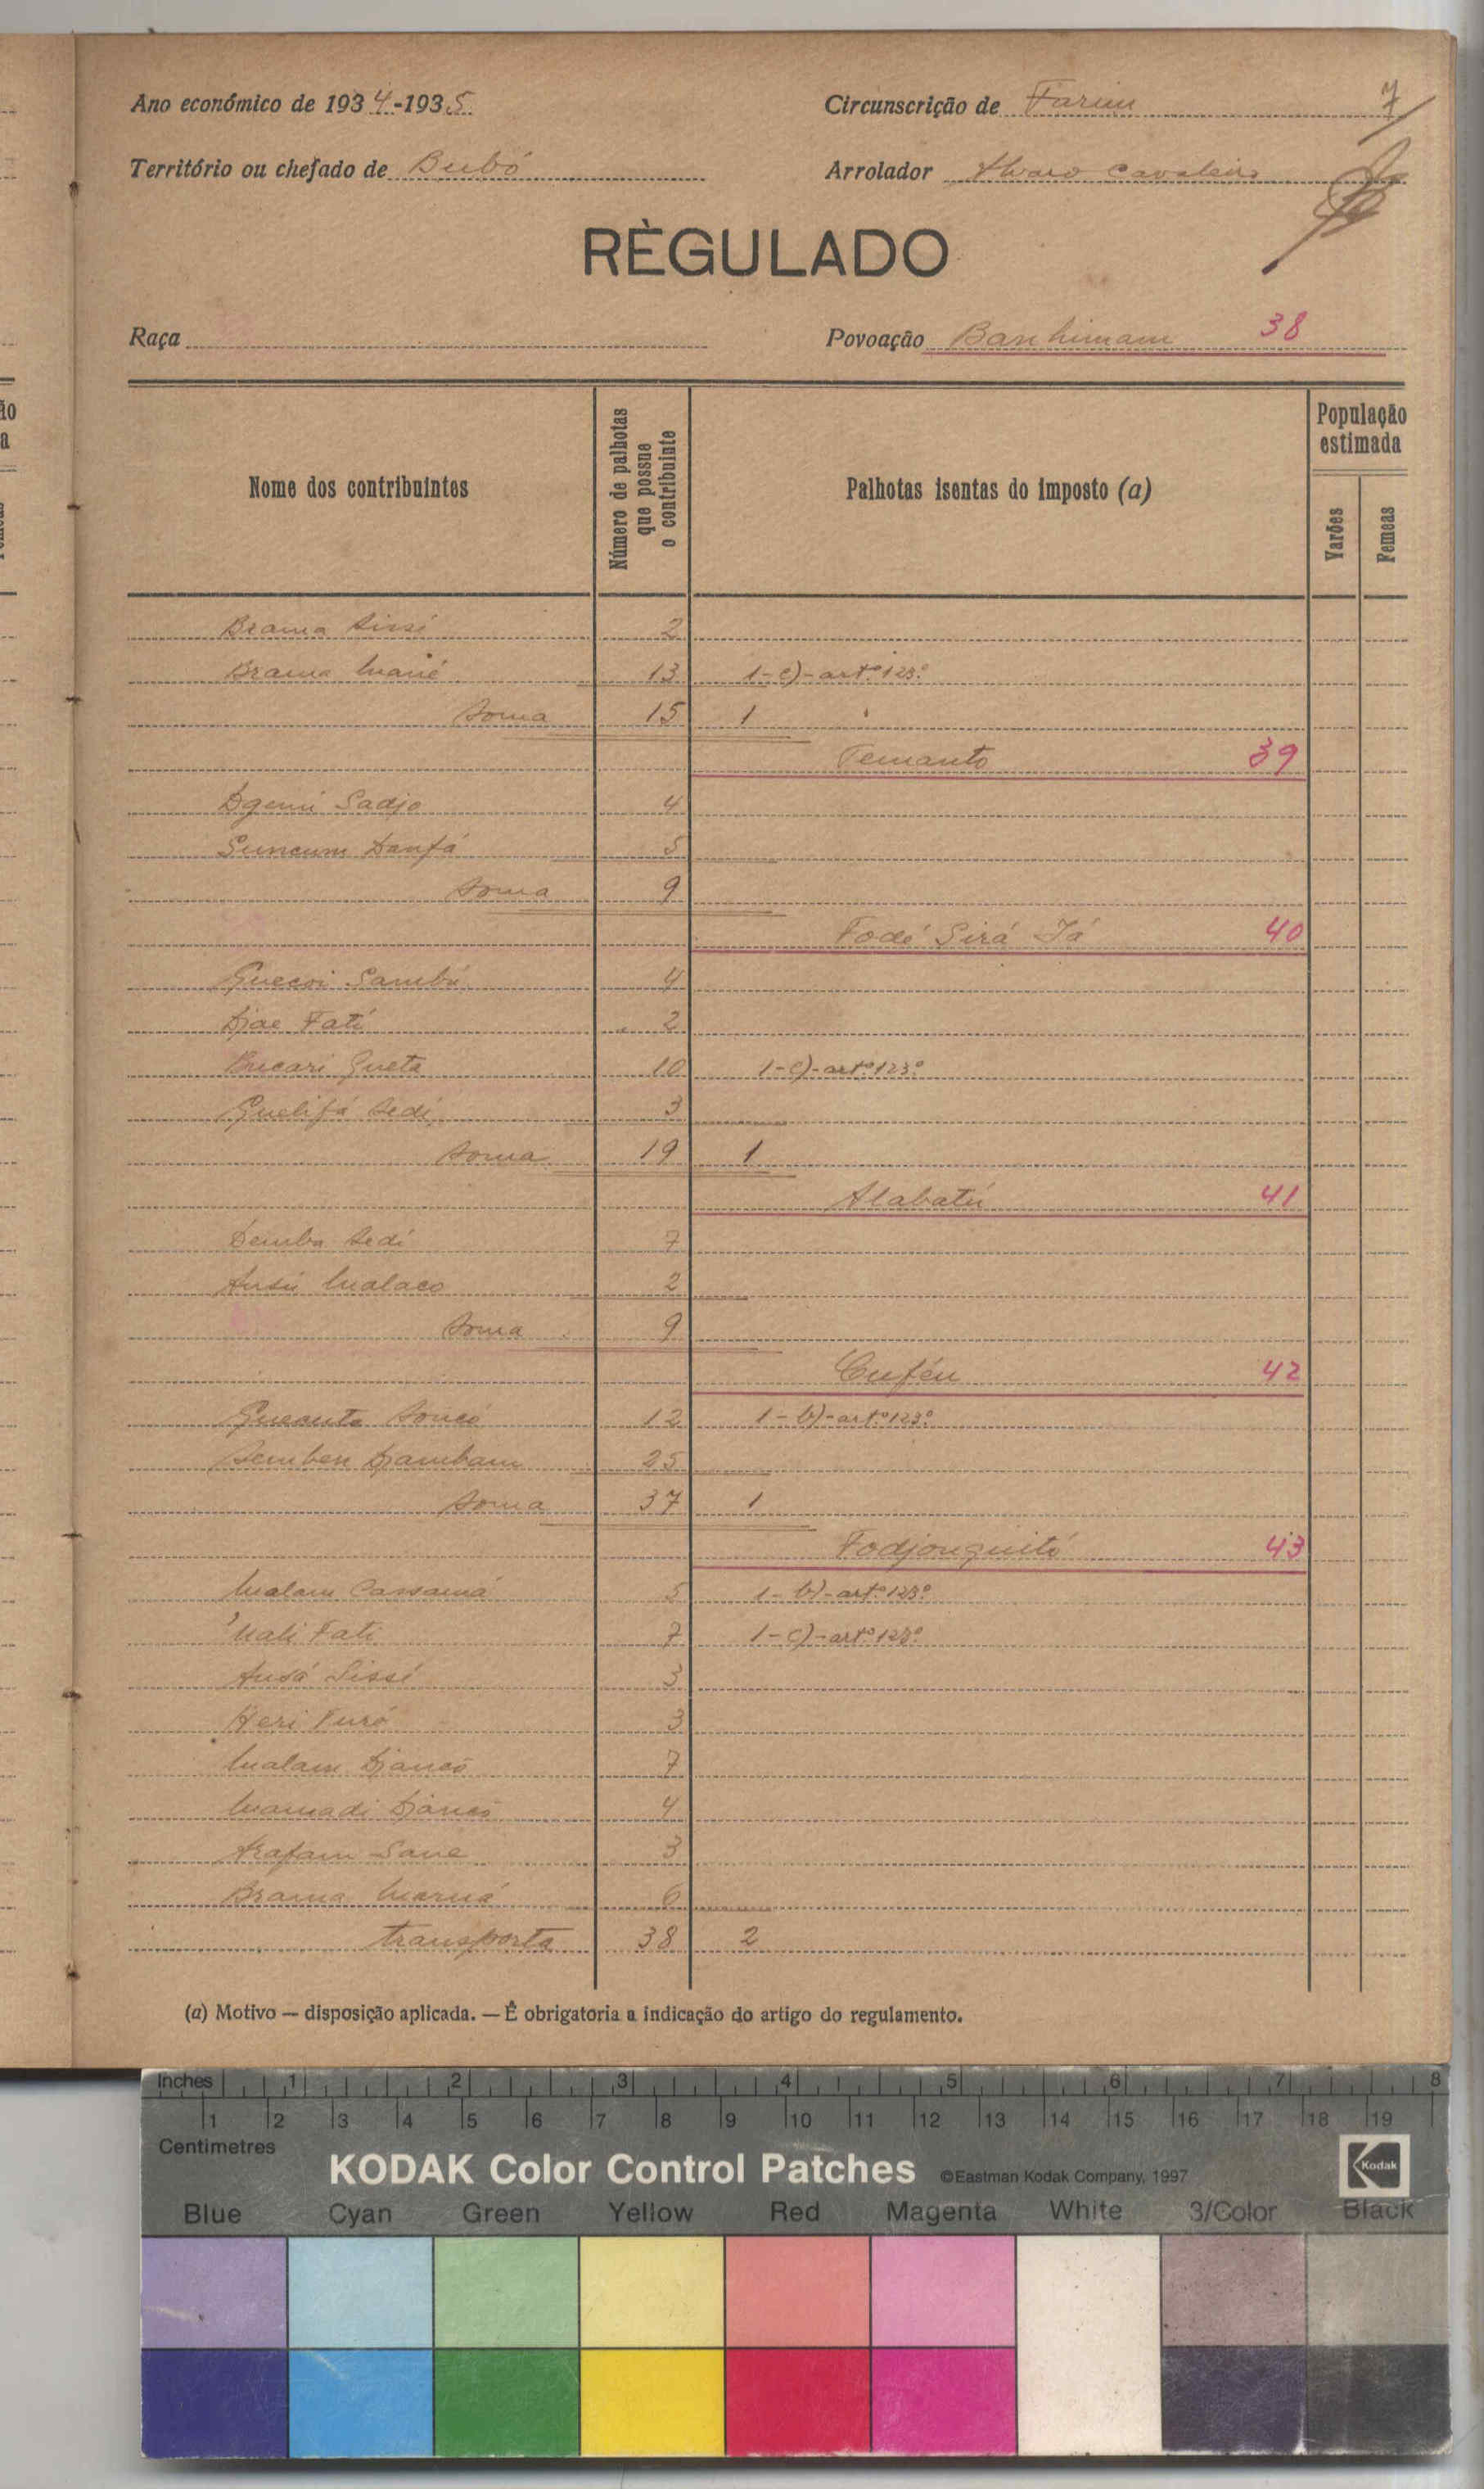 Ano económico de 1934-1935
Circunscrição de Farim 7
Território ou chefado de Bubó
Arrolador Alvaro Cavaleiro
RÈGULADO
Raça
Povoação Banhimam 38
Nome dos contribuintes
Número de palhotas que possue o contribuinte
Palhotas isentas do imposto (a)
População estimada
Varões
Femeas
Brama Sissé 2
Brama Mané 13 1-c)-artº 123º
Soma 15 1
Temanto 39
Dgemi Sadjo 4
Suncum Danfá 5
Soma 9
Fodé Sirá Já 40
Quecoi Sambú 4
Djae Fati 2
Bucari Queta 10 1-c)-artº 123º
Quelifá Sedi 3
Soma 19 1
Alabatú 41
Demba Sedi 7
Ansú Malaco 2
Soma 9
Cuféu 42
Quecuta Soncó 12 1-b)-artº 123º
Sember Djambam 25
Soma 37 1
Fodjonquitó 43
Malam Cassamá 5 1-b)-artº 123º
Mali Fati 7 1-c)-artº 123º
Ansá Sissé 3
Keri Turé 3
Malam Djancó 7
Mamadi Djancó 4
Arafam Sané 3
Brama Marná 6
transporta 38 2
(a) Motivo — disposição aplicada. — É obrigatoria a indicação do artigo do regulamento.
Inches 1 2 3 4 5 6 7 8
1 2 3 4 5 6 7 8 9 10 11 12 13 14 15 16 17 18 19
Centimetres
KODAK Color Control Patches ©Eastman Kodak Company, 1997 Kodak
Blue Cyan Green Yellow Red Magenta White 3/Color Black